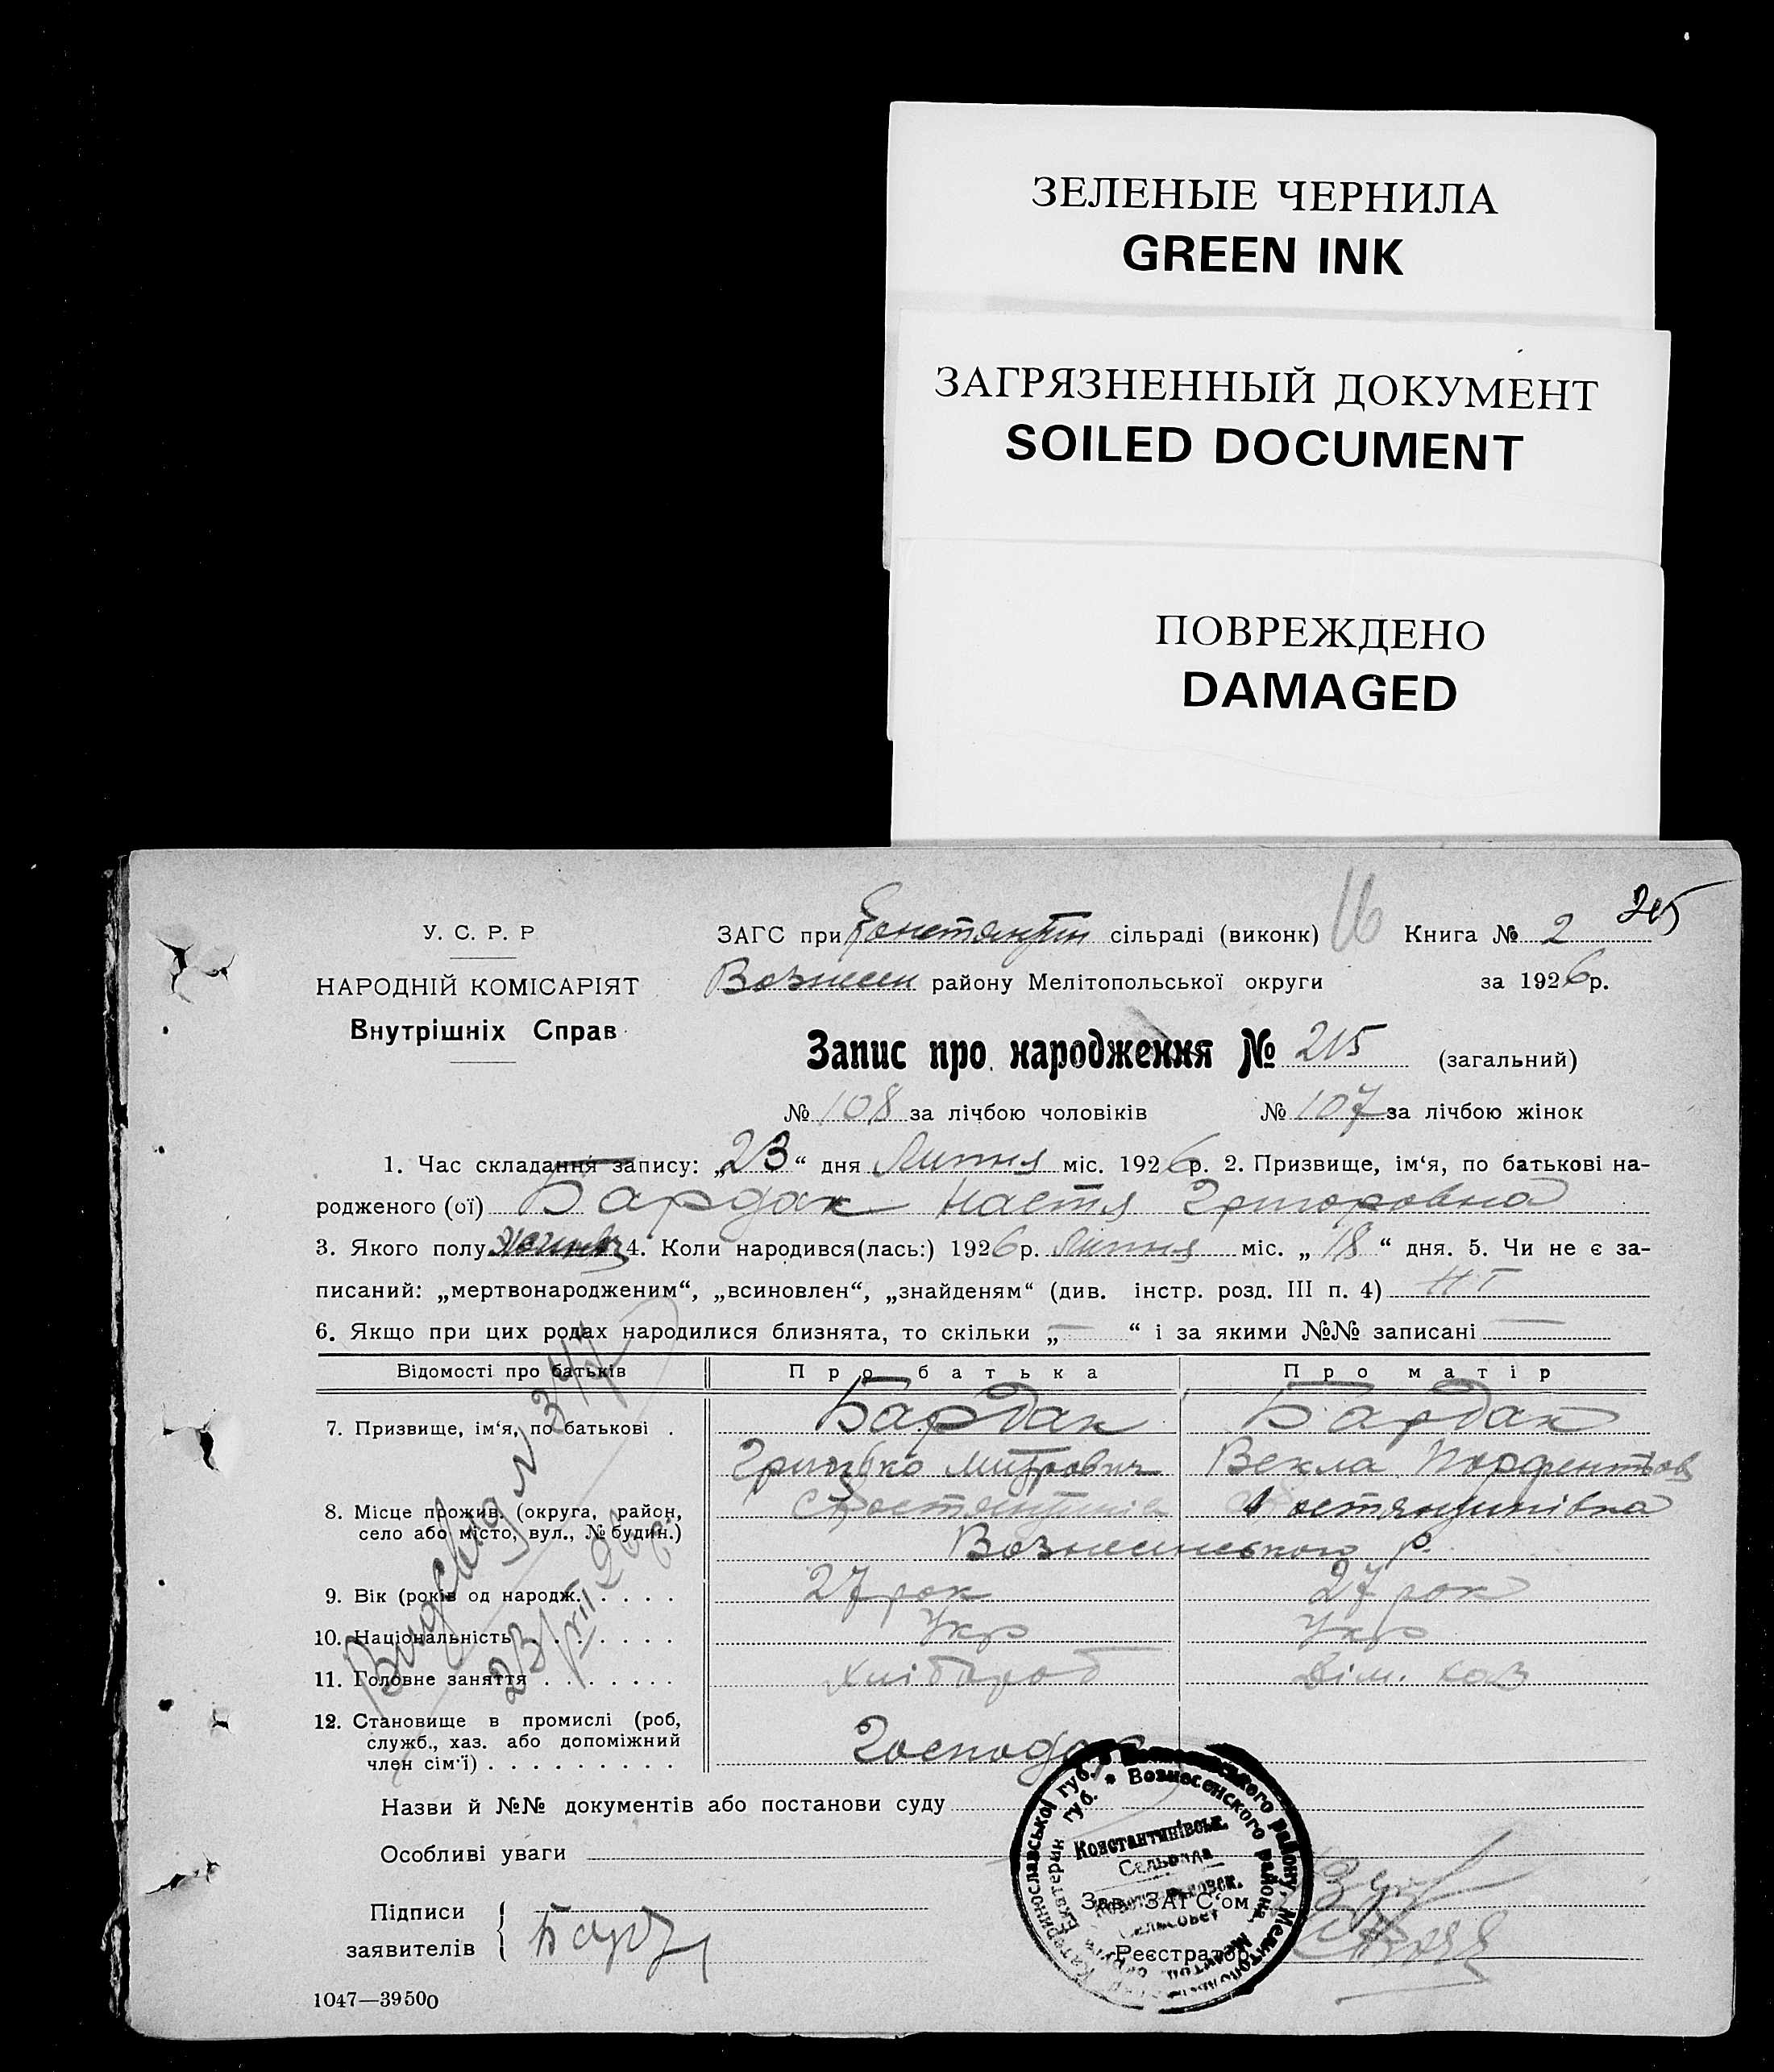 ЗЕЛЕНЫЕ ЧЕРНИЛА
GREEN INK
ЗАГРЯЗНЕННЫЙ ДОКУМЕНТ
SOILED DOCUMENT
ПОВРЕЖДЕНО
DAMAGED
16
215
У. С. Р. Р
НАРОДНІЙ КОМІСАРІЯТ
Внутрішніх Справ
ЗАГС при Константин сільраді (виконк) Книга № 2
Вознесен району Мелітопольської округи за 1926р.
Запис про народження № 215 (загальний)
№ 108 за лічбою чоловіків № 107 за лічбою жінок
1. Час складання запису: „23“ дня Липня міс. 1926р. 2. Призвище, ім‘я, по батькові на-
родженого (ої) Бардак Настя Григоровна
3. Якого полу 4. Коли народився(лась:) 1926р. Липня міс. „18“ дня. 5. Чи не є за-
писаний: „мертвонародженим“, „всиновлен“, „знайденям“ (див. інстр. розд. III п. 4) НТ
6. Якщо при цих родах народилися близнята, то скільки „—“ і за якими №№ записані —
Відомості про батьків Про батька Про матір
7. Призвище, ім‘я, по батькові . Бардак Бардак
Грицько Митрович Векла
8. Місце прожив. (округа, район, Костянтинівка
село або місто, вул., № будин.) Вознесенського р.
9. Вік (років од народж. . . . . 27 рок 27 рок
10. Національність . . . . . . . Укр Укр
11. Головне заняття . . . . . . . Хлібороб Дім. хоз
12. Становище в промислі (роб,
служб., хаз. або допоміжний
член сім‘ї) . . . . . . . . . Господар
Видав 347
23/XII 26 р
Назви й №№ документів або постанови суду
Особливі уваги
Підписи
заявителів
Бард
Зав. ЗАГС‘ом
Реєстратор
Вознесенского района
Екатерин губ.
Катеринославської губ.
району, Мелитопольс
Константинівськ.
Сельрада
1047—39500